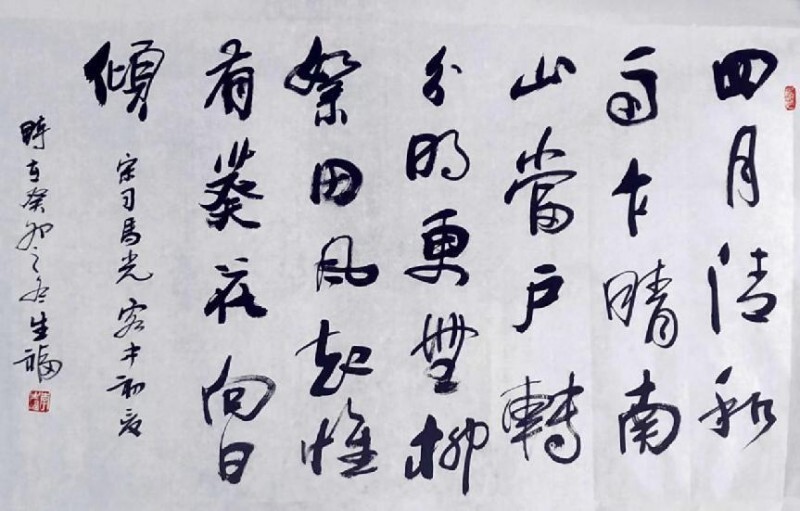 四月清和
雨乍晴南
山當戶轉
分明更無柳
絮因風起惟
有葵花向日
傾
宋司馬光客中初夏
時在癸卯之冬生福